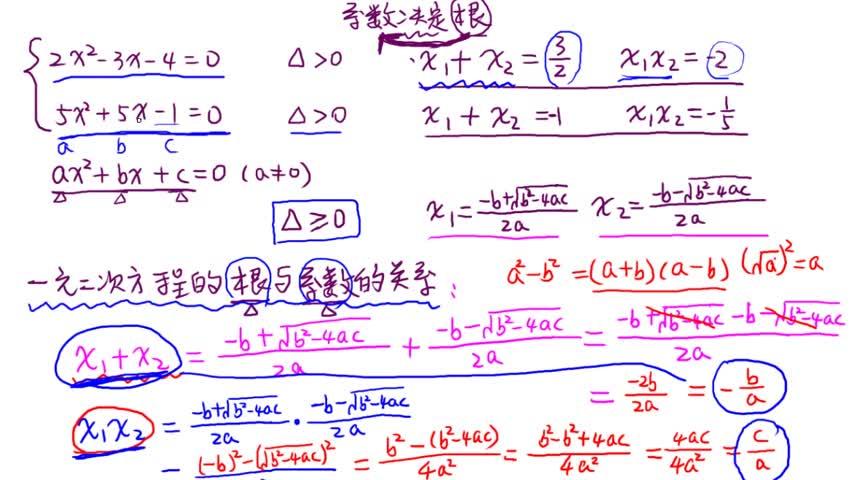 系数决定根
2x²-3x-4=0 Δ>0 x₁+x₂=3/2 x₁x₂=-2
5x²+5x-1=0 Δ>0 x₁+x₂=-1 x₁x₂=-1/5
a b c
ax²+bx+c=0 (a≠0)
Δ Δ Δ
Δ≥0 x₁=(-b+√(b²-4ac))/2a x₂=(-b-√(b²-4ac))/2a
a²-b²=(a+b)(a-b) (√a)²=a
一元二次方程的根与系数的关系:
Δ Δ
x₁+x₂=(-b+√(b²-4ac))/2a+(-b-√(b²-4ac))/2a=(-b+√(b²-4ac)-b-√(b²-4ac))/2a
=-2b/2a=-b/a
x₁x₂=(-b+√(b²-4ac))/2a·(-b-√(b²-4ac))/2a
(-b)²-(√(b²-4ac))² =(b²-(b²-4ac))/4a²=(b²-b²+4ac)/4a²=4ac/4a²=c/a